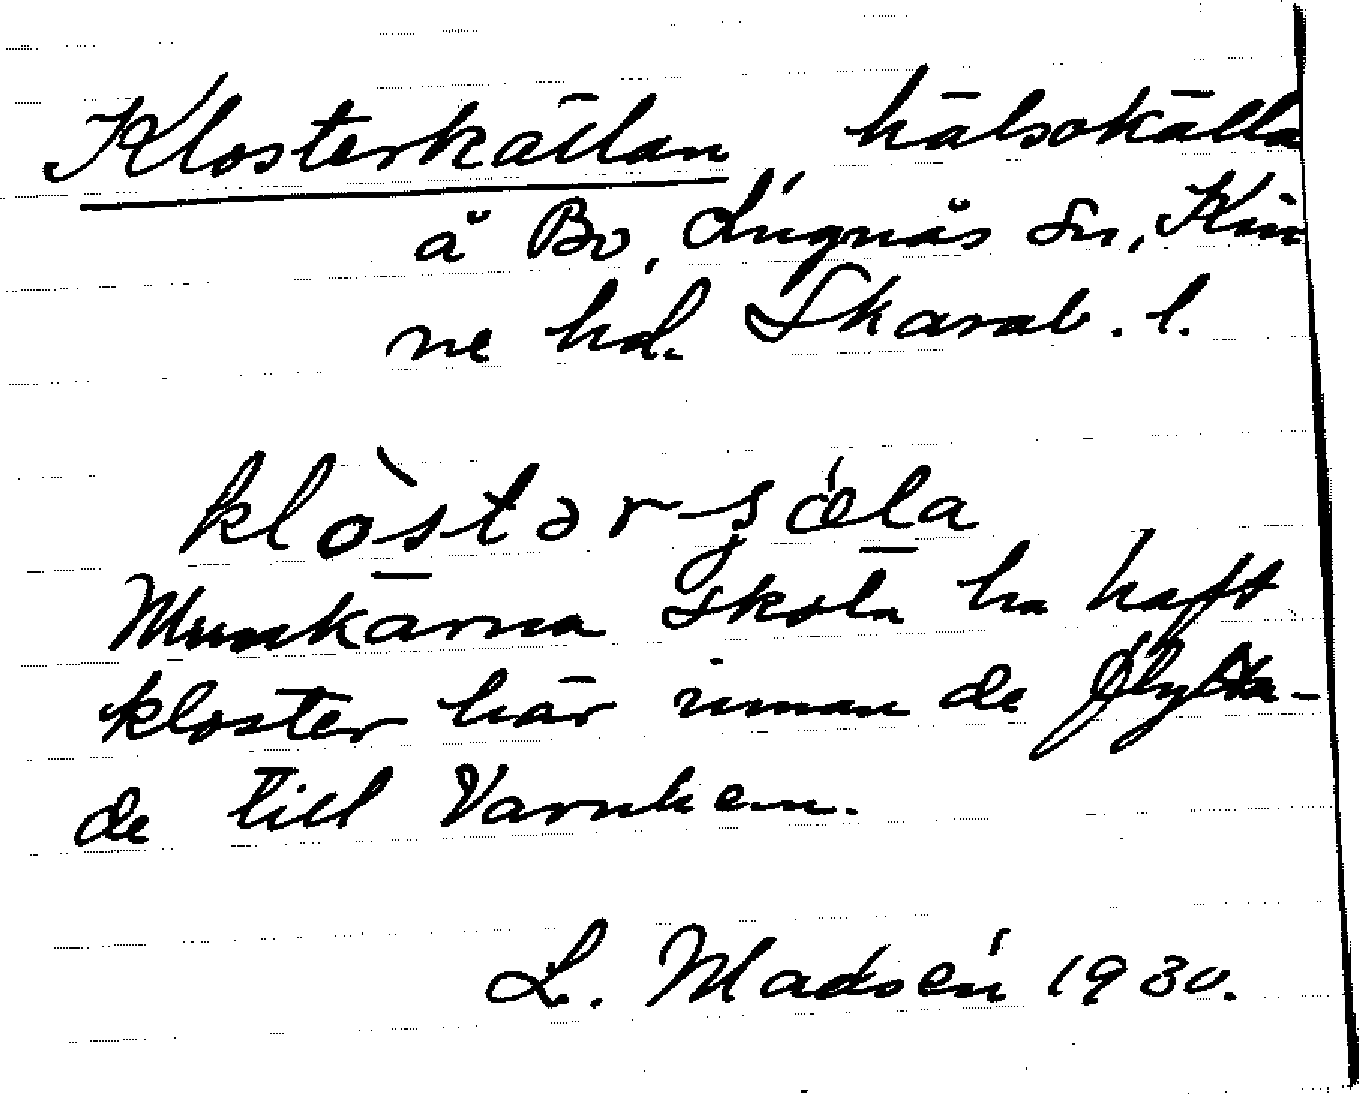 Klosterkällan, hälsokälla
å Bo, Lugnås sn, Kin
ne hd. Skarab. l.
klòstər-şǽla
Munkarna skola ha haft
kloster här innan de flytta-
de till Varnhem.
L. Madsén 1930.